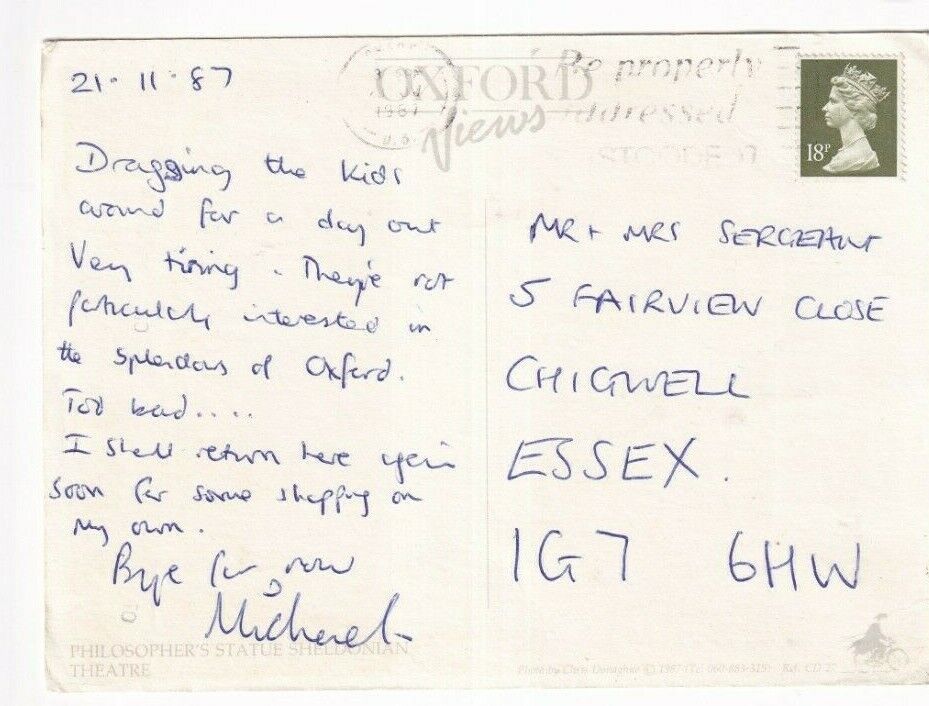 21·11·87
OXFORD
Views
1987
Be properly
addressed
18P
Dragging the kids
around for a day out
Very tiring. They're not
particularly interested in
the splendours of Oxford.
Too bad....
I shall return here again
soon for some shopping on
my own.
Bye for now
Michael
MR + MRS SERGEANT
5 FAIRVIEW CLOSE
CHIGWELL
ESSEX.
IG7 6HW
PHILOSOPHER'S STATUE SHELDONIAN
THEATRE
Photo by Chris Donaghue © 1987 (TE 060-883-315) Ref. CD